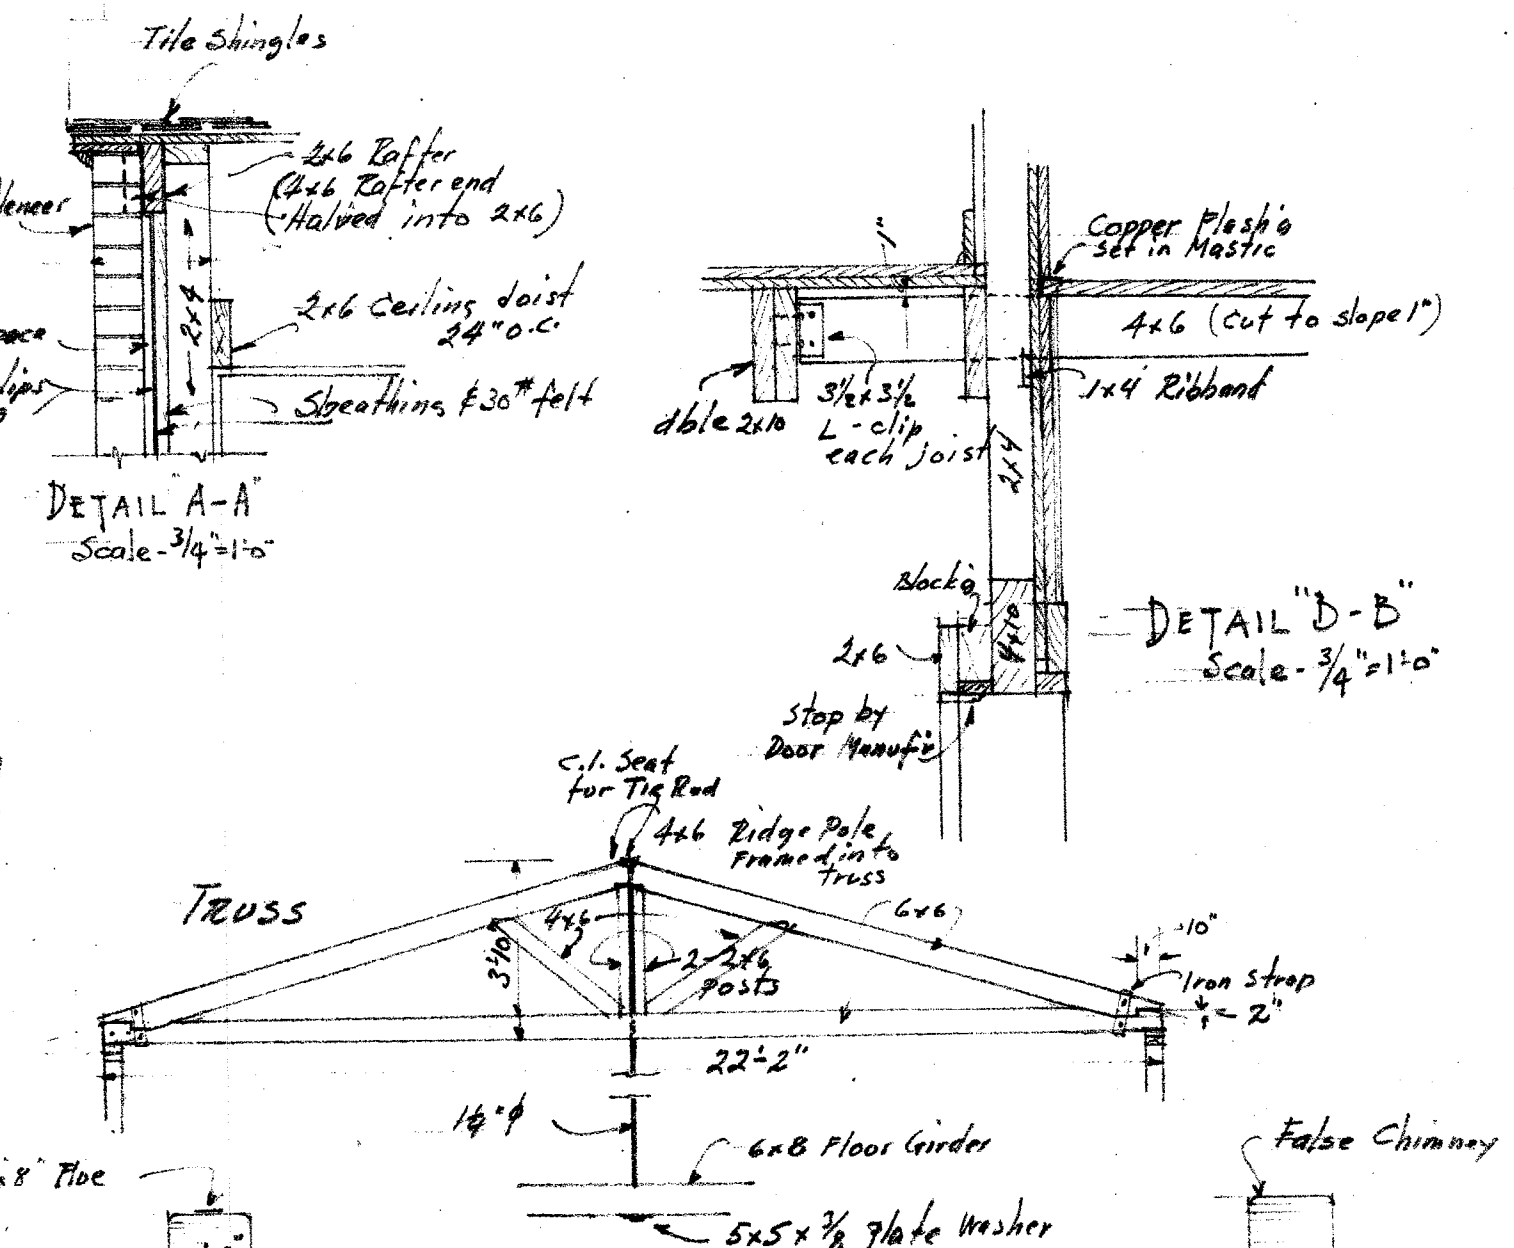 Tile Shingles
2x6 Rafter
(4x6 Rafter end
Halved into 2x6)
2x4
2x6 Ceiling Joist
24" O.C.
Sheathing & 30# felt
DETAIL "A-A"
Scale - 3/4" = 1'-0"
1"
Copper Flash'g
set in Mastic
4x6 (Cut to slope 1")
1x4 Ribband
dble 2x10
3½ x 3½
L - clip
each joist
2x4
Block'g
4x10
2x6
Stop by
Door Manuf'r
DETAIL "B-B"
Scale - 3/4" = 1'-0"
C.I. Seat
for Tie Rod
4x6 Ridge Pole
Framed into
truss
TRUSS
4x6
6x6
3'-10"
2-2x6
Posts
10"
Iron Strap
2"
22'-2"
6x8 Floor Girder
5x5x3/8 Plate Washer
8" Flue
False Chimney